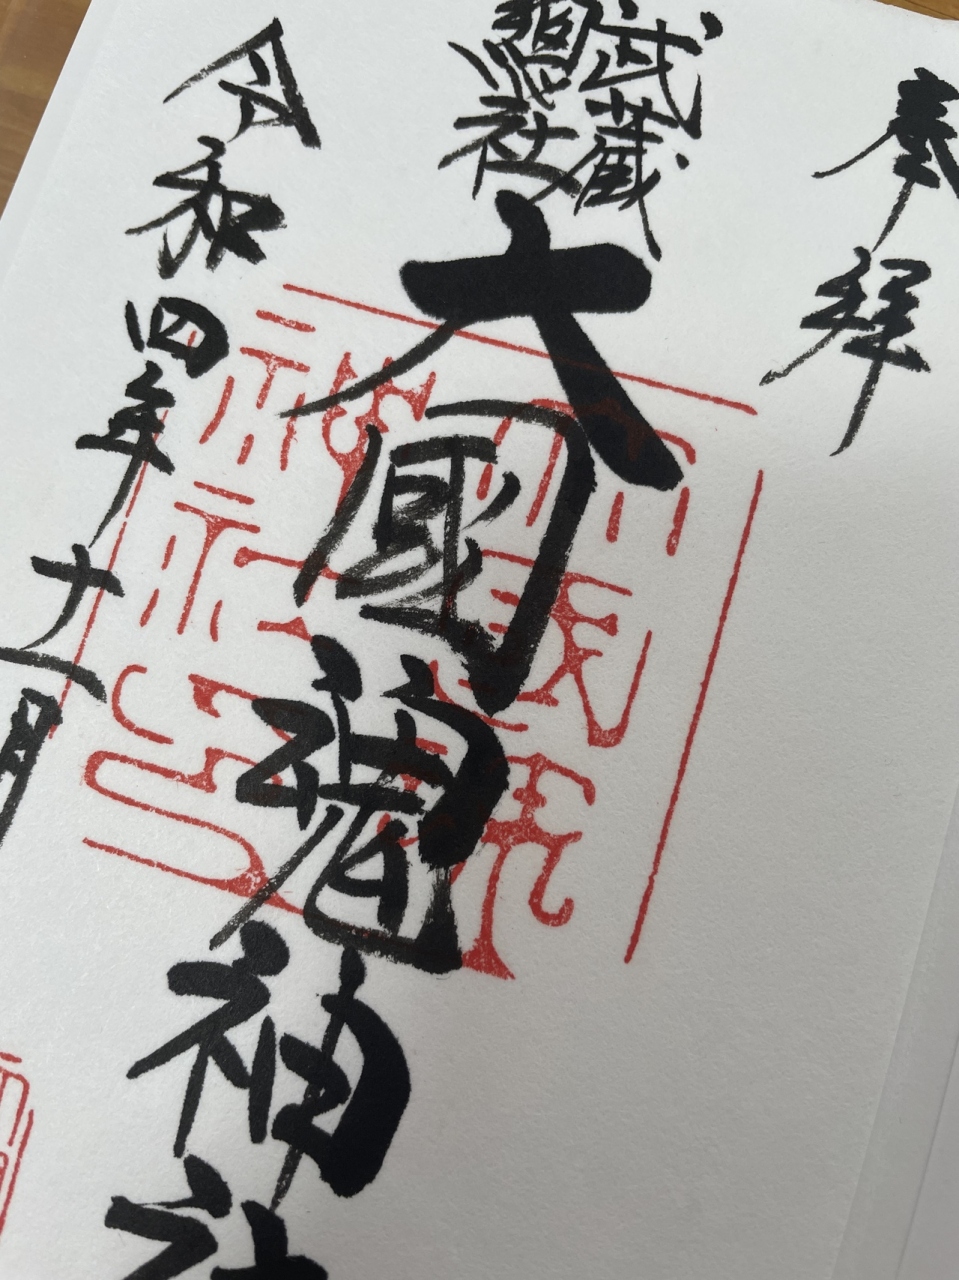 奉拝
武蔵
総社
大國魂神社
令和四年十一月